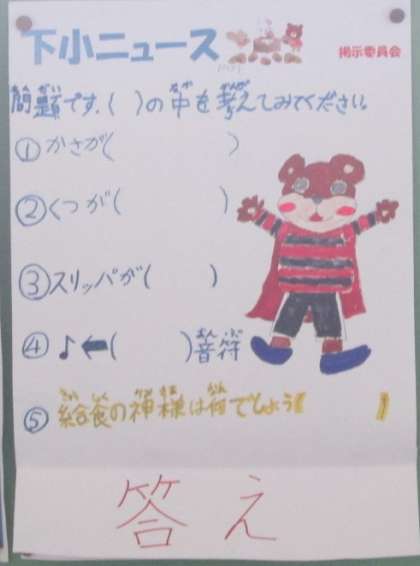 下小ニュース
掲示委員会
問題です。( )の中を考えてみてください。
①かさが( )
②くつが( )
③スリッパが( )
④♪←( )音符
⑤給食の神様は何でしょう【 】
答え